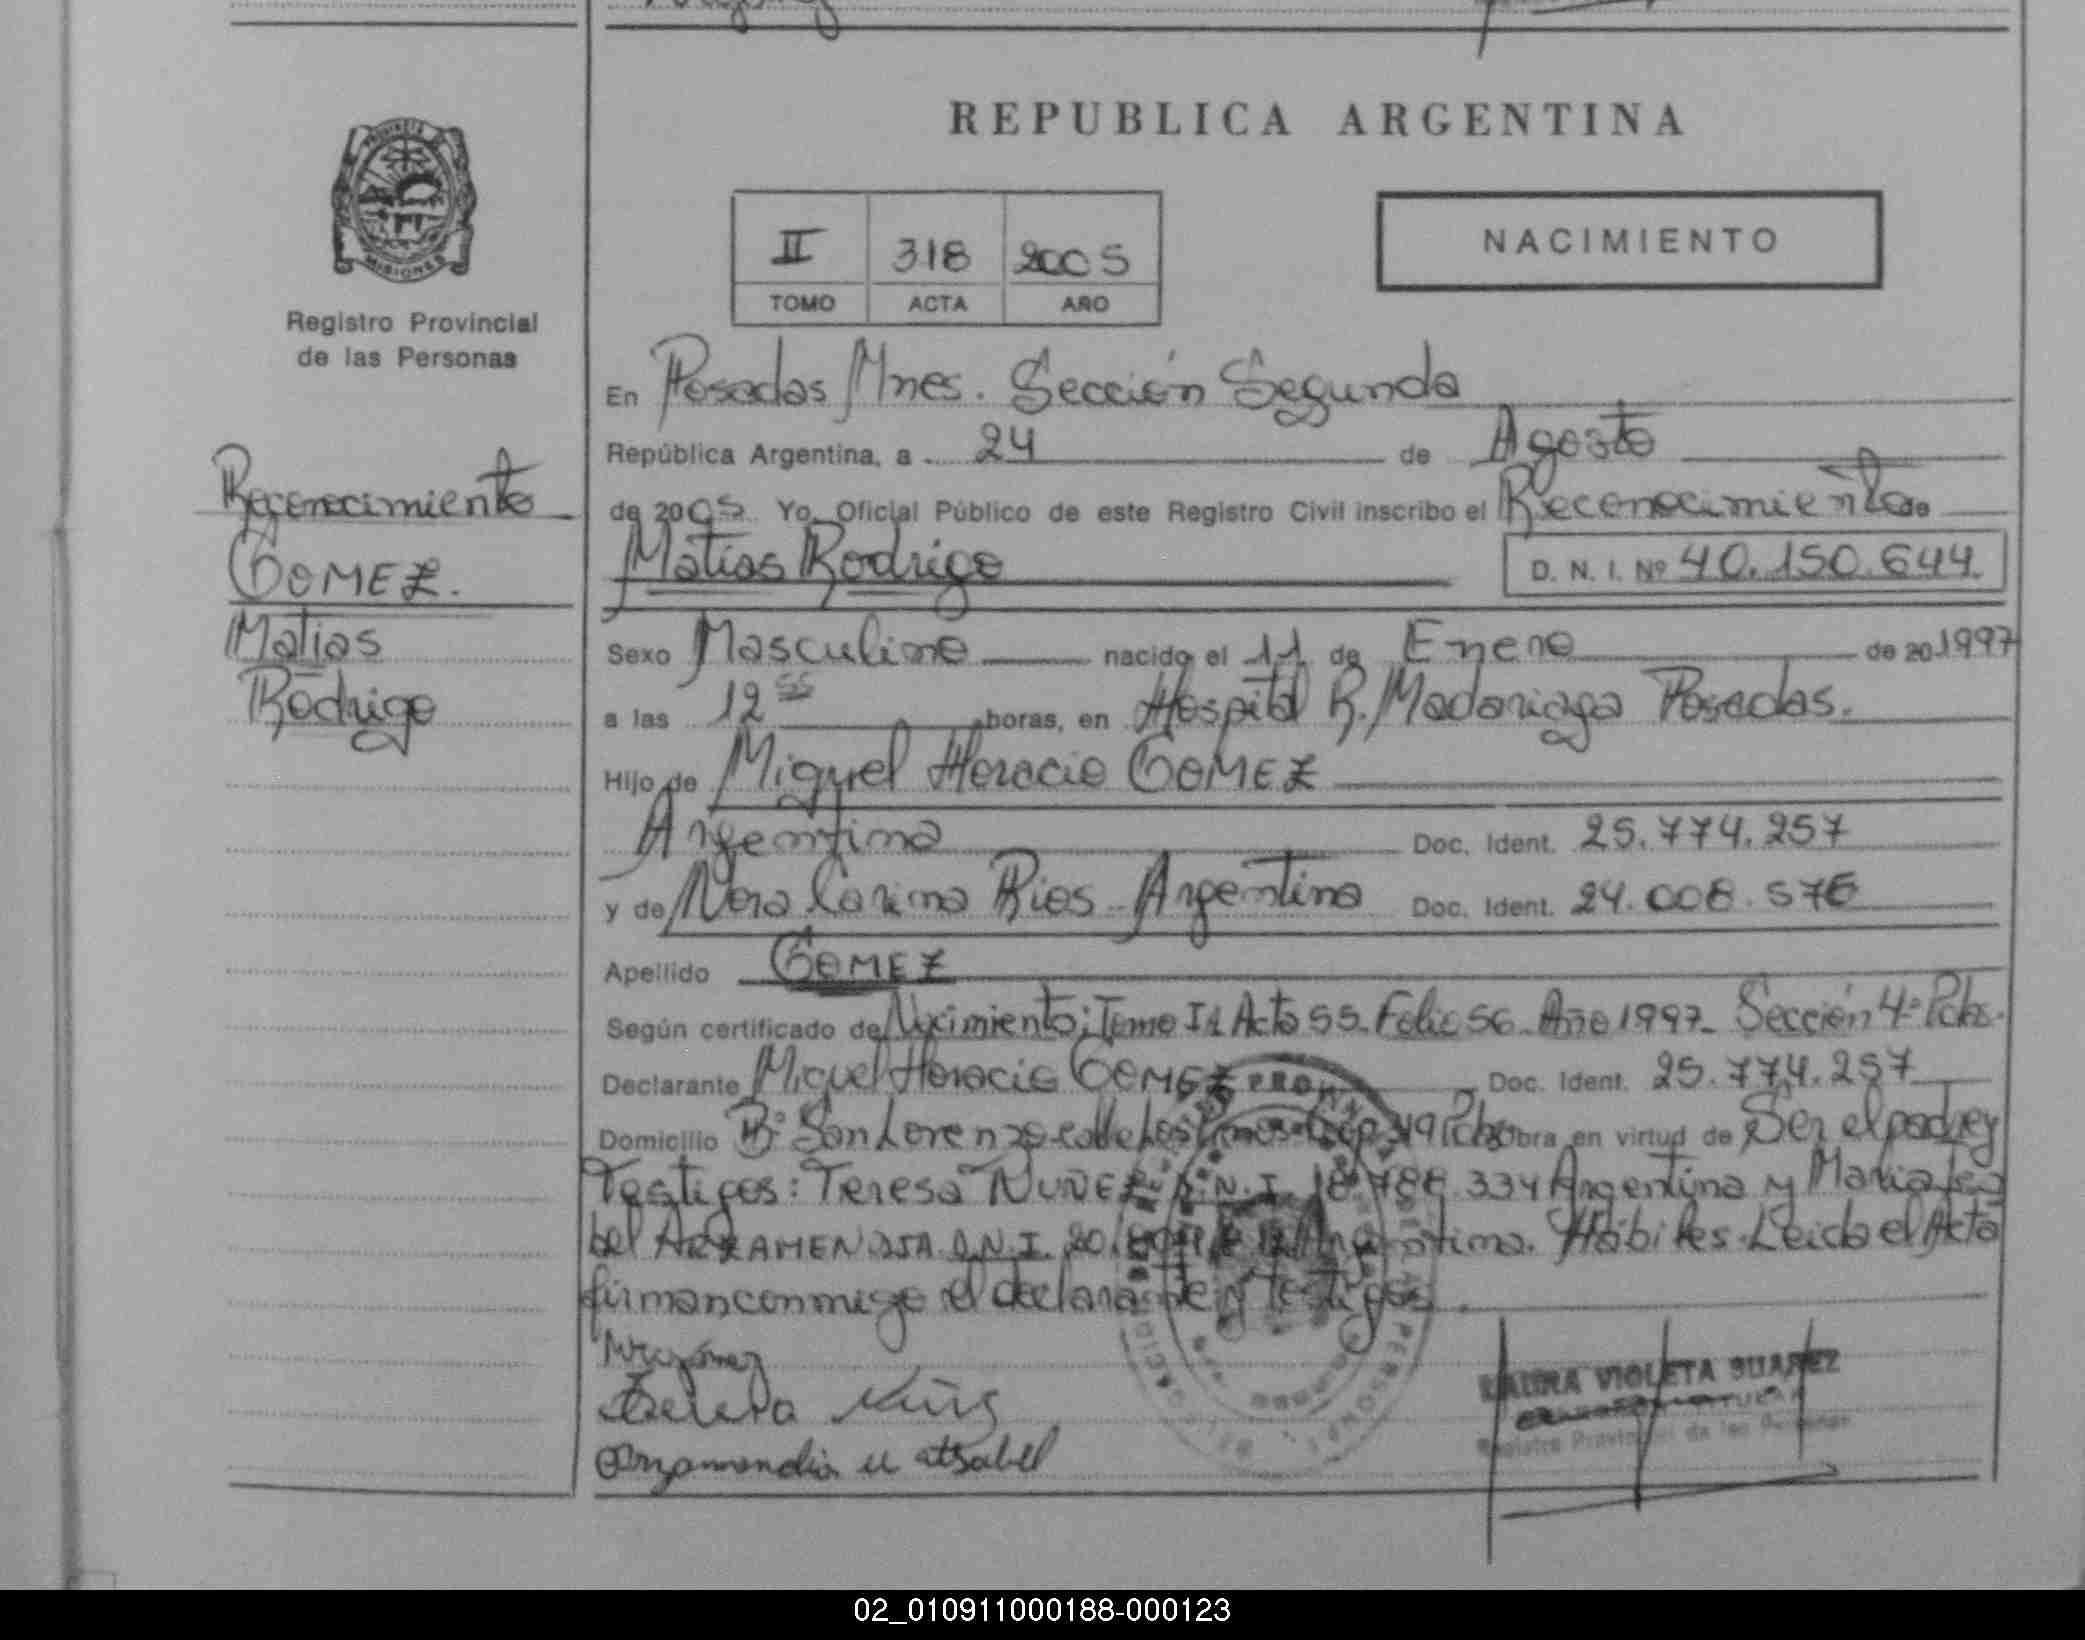 REPUBLICA ARGENTINA
PROVINCIA DE
MISIONES
Registro Provincial
de las Personas
II 318 2005
TOMO ACTA AÑO
NACIMIENTO
Reconocimiento
GOMEZ.
Matias
Rodrigo
En Posadas Mnes. Sección Segunda
República Argentina, a 24 de Agosto
de 2005 Yo, Oficial Público de este Registro Civil inscribo el Reconocimiento de
Matias Rodrigo D. N. I. Nº 40.150.644.
Sexo Masculino nacido el 11 de Enero de 20 1997
a las 12 55 horas, en Hospital R. Madariaga Posadas.
Hijo de Miguel Horacio GOMEZ
Argentina Doc. Ident. 25.774.257
y de Nora Carina Rios Argentina Doc. Ident. 24.008.576
Apellido GOMEZ
Según certificado de Nacimiento; Tomo II Acta 55 Folio 56 Año 1997 Sección 4º Pdas.
Declarante Miguel Horacio GOMEZ Doc. Ident. 25.774.257
Domicilio Bº San Lorenzo calle Los 49 Pdas Obra en virtud de Ser el padre y
Testigos: Teresa NUÑEZ D.N.I. 18.788.334 Argentina y Maria Isa
bel ARZAMENDIA D.N.I. 20. Argentina. Hábiles. Leida el Acta
firman conmigo el declarante y testigos.
Teresa Nuñez
Arzamendia M Isabel
LAURA VIOLETA SUAREZ
Registro Provincial de las Personas
02_010911000188-000123